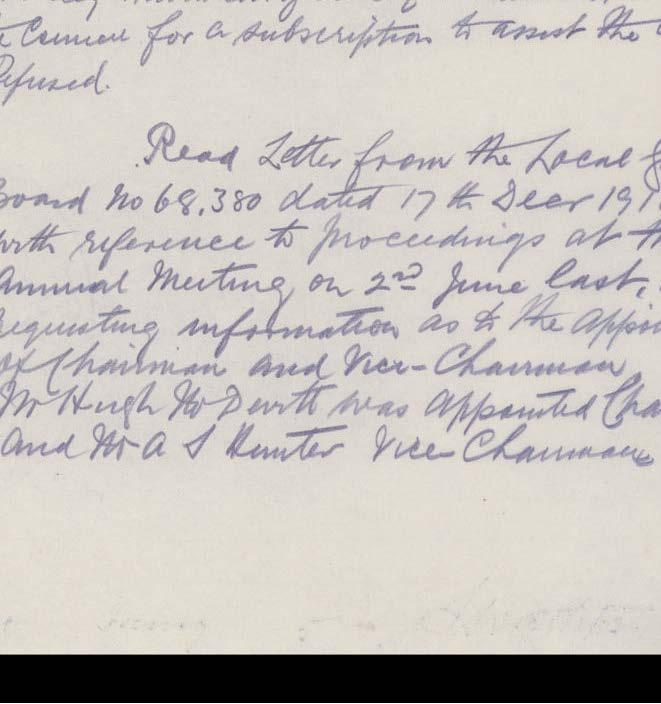 Council for a subscription to assist the
Refused.
Read Letter from the Local G
Board No 68,380 dated 17th Decr 191
with reference to proceedings at th
Annual Meeting on 2nd June last,
requesting information as to the appoin
of Chairman and Vice-Chairman
Mr Hugh McDevitt was appointed Cha
and Mr A S Hunter Vice-Chairman